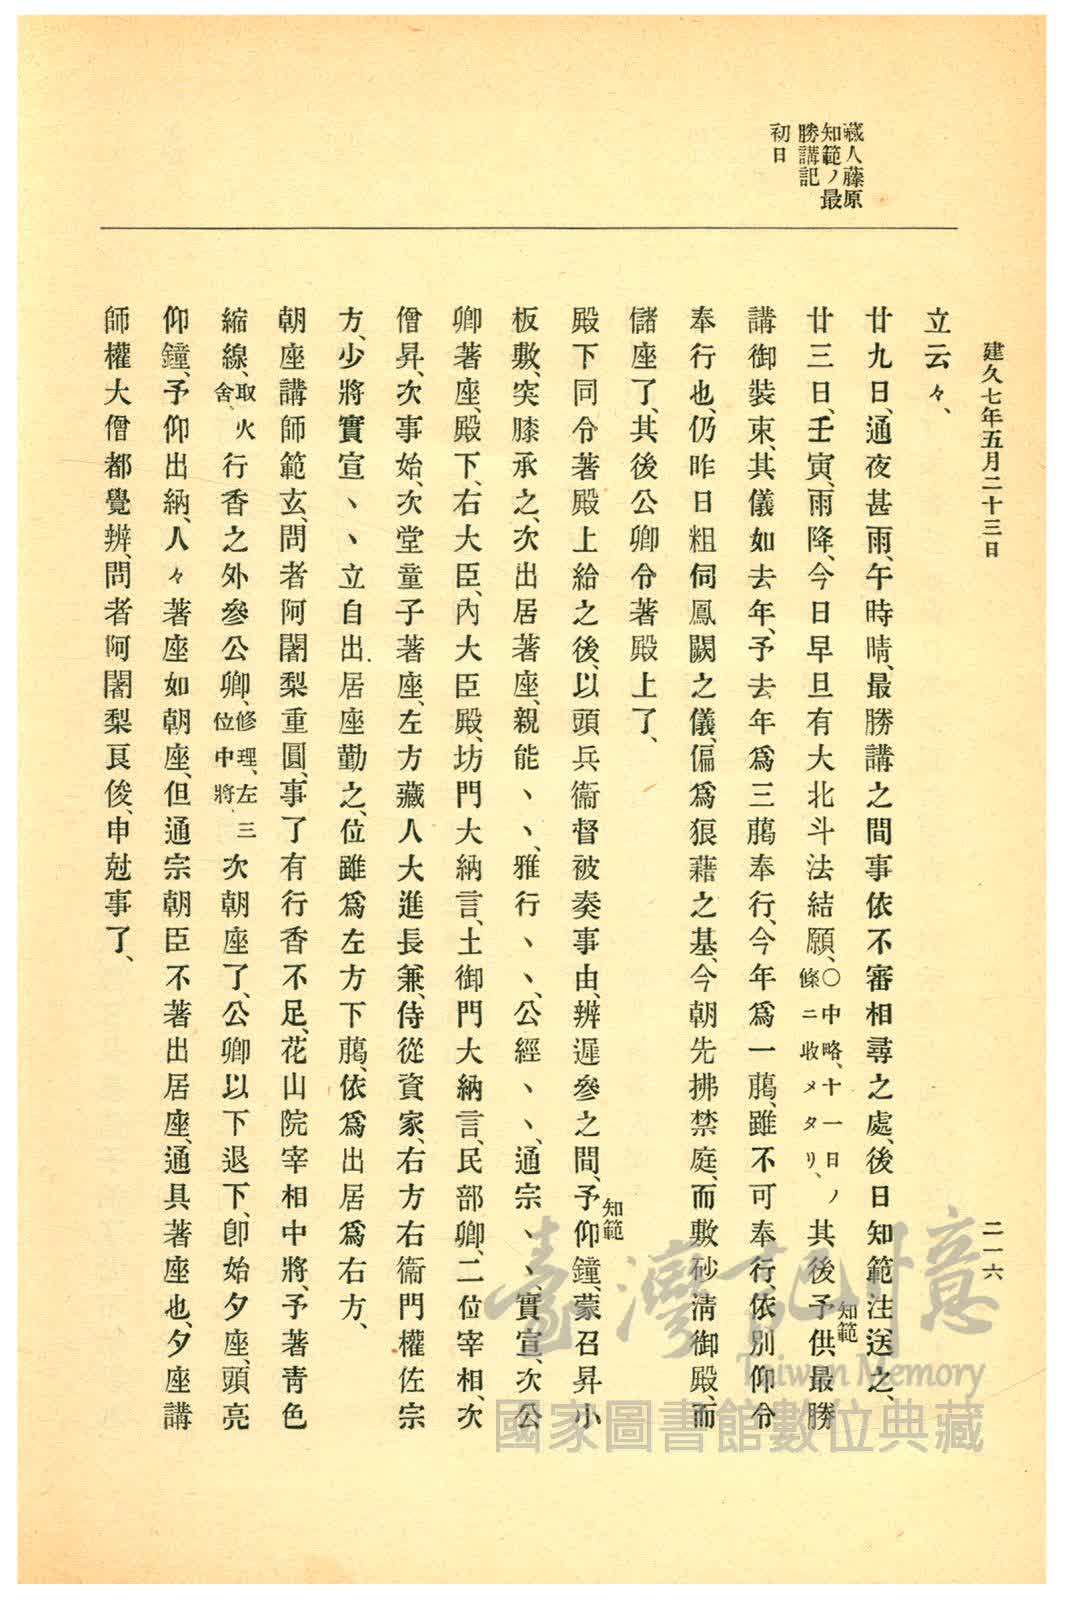 建久七年五月二十三日
二一六
藏人藤原
知範ノ最
勝講記
初日
立云々、
廿九日、通夜甚雨、午時晴、最勝講之間事依不審相尋之處、後日知範注送之、
廿三日、壬寅、雨降、今日早旦有大北斗法結願、〇中略、十一日ノ條ニ收メタリ、其後予知範供最勝
講御裝束、其儀如去年、予去年爲三﨟奉行、今年爲一﨟、雖不可奉行、依別仰令
奉行也、仍昨日粗伺鳳闕之儀、偏爲狼藉之基、今朝先拂禁庭、而敷砂淸御殿、而
儲座了、其後公卿令著殿上了、
殿下同令著殿上給之後、以頭兵衞督被奏事由、辨遲參之間、予知範仰鐘、蒙召昇小
板敷、突膝承之、次出居著座、親能、、雅行、、公經、、通宗、、實宣、次公
卿著座、殿下、右大臣、內大臣殿、坊門大納言、土御門大納言、民部卿、二位宰相、次
僧昇、次事始、次堂童子著座、左方藏人大進長兼、侍從資家、右方右衞門權佐宗
方、少將實宣、、立自出居座勤之、位雖爲左方下﨟、依爲出居爲右方、
朝座講師範玄、問者阿闍梨重圓、事了有行香不足、花山院宰相中將、予著靑色
縮線、取火舍、行香之外參公卿、修理、左三位中將、次朝座了、公卿以下退下、卽始夕座、頭亮
仰鐘、予仰出納、人々著座如朝座、但通宗朝臣不著出居座、通具著座也、夕座講
師權大僧都覺辨、問者阿闍梨良俊、申尅事了、
臺灣記憶
Taiwan Memory
國家圖書館數位典藏